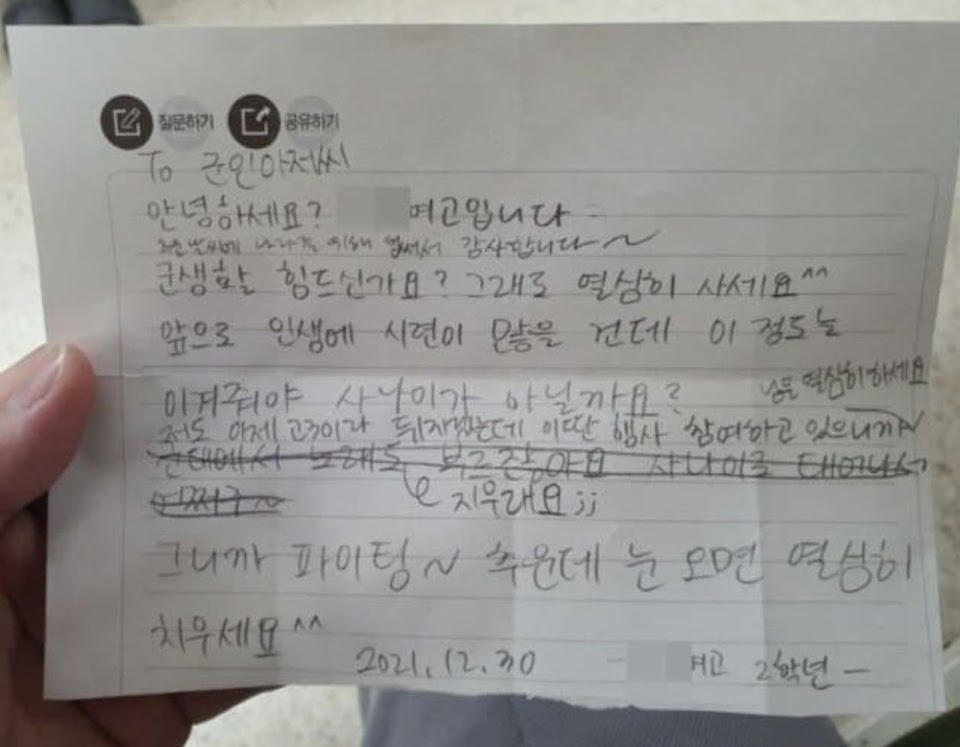 질문하기 공유하기
To 군인아저씨
안녕하세요? 여고입니다
추운 날씨에 나라를 위해 힘써서 감사합니다~
군생활 힘드신가요? 그래도 열심히 사세요^^
앞으로 인생에 시련이 많을 건데 이 정도는
이겨줘야 사나이가 아닐까요?
님은 열심히하세요
저도 이제 고3이라 뒤지겠는데 이딴 행사 참여하고 있으니까~
군대에서 노래도 부르잖아요 사나이로 태어나서
어쩌구~
지우래요;;
그니까 파이팅~ 추운데 눈 오면 열심히
치우세요^^
2021.12.30 - 여고 2학년 -